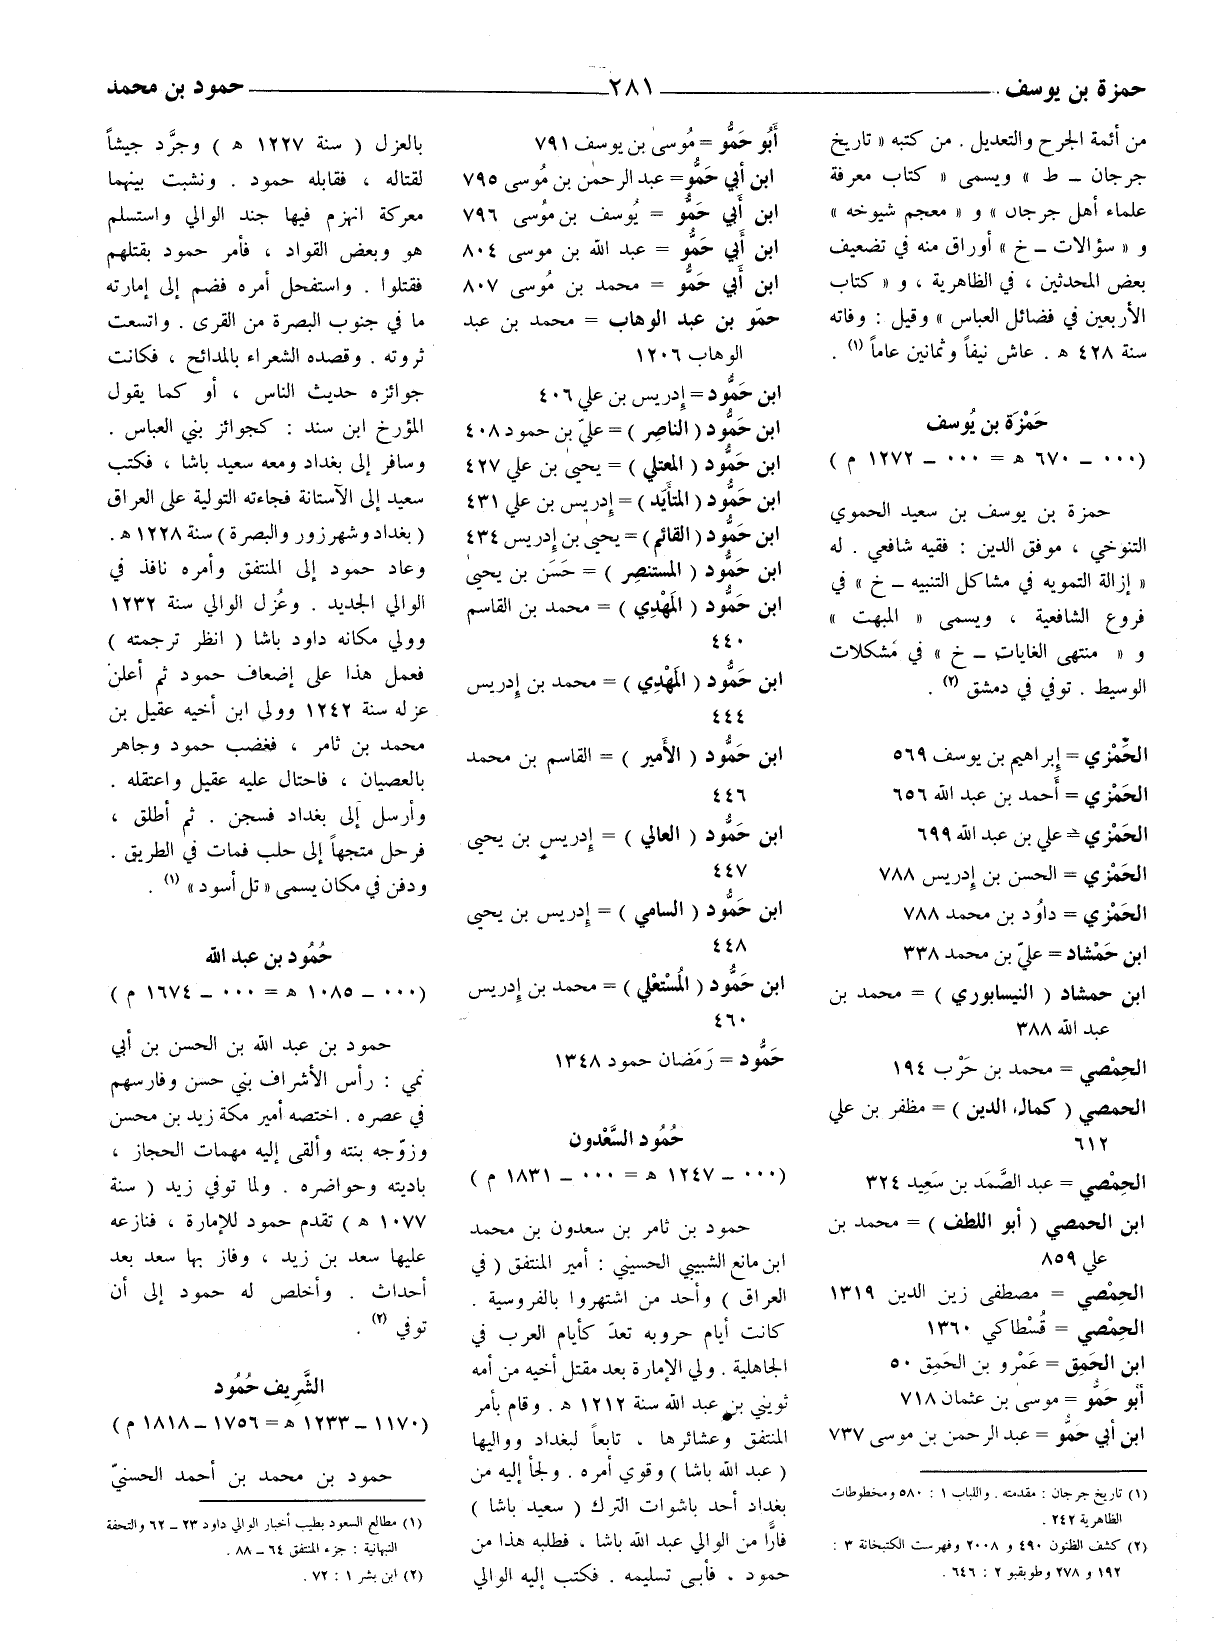 حمزة بن يوسف ٢٨١ حمود بن محمد
من أئمة الجرح والتعديل . من كتبه « تاريخ
جرجان ــ ط » ويسمى « كتاب معرفة
علماء أهل جرجان » و « معجم شيوخه »
و « سؤالات ــ خ » أوراق منه في تضعيف
بعض المحدثين ، في الظاهرية ، و « كتاب
الأربعين في فضائل العباس » وقيل : وفاته
سنة ٤٢٨ ه . عاش نيفاً وثمانين عاماً (١) .
حَمْزَة بن يُوسف
(٠٠٠ ــ ٦٧٠ ه = ٠٠٠ ــ ١٢٧٢ م )
حمزة بن يوسف بن سعيد الحموي
التنوخي ، موفق الدين : فقيه شافعي . له
« إزالة التمويه في مشاكل التنبيه ــ خ » في
فروع الشافعية ، ويسمى « المبهت »
و « منتهى الغايات ــ خ » في مشكلات
الوسيط . توفي في دمشق (٢) .
الحَمْزي = إبراهيم بن يوسف ٥٦٩
الحَمْزي = أحمد بن عبد الله ٦٥٦
الحَمْزي = علي بن عبد الله ٦٩٩
الحَمْزي = الحسن بن إدريس ٧٨٨
الحَمْزي = داوُد بن محمد ٧٨٨
ابن حَمْشاد = عليّ بن محمد ٣٣٨
ابن حمشاد ( النيسابوري ) = محمد بن
عبد الله ٣٨٨
الحِمْصي = محمد بن حَرْب ١٩٤
الحمصي ( كمال الدين ) = مظفر بن علي
٦١٢
الحِمْصي = عبد الصَّمَد بن سَعِيد ٣٢٤
ابن الحمصي ( أبو اللطف ) = محمد بن
علي ٨٥٩
الحِمْصي = مصطفى زين الدين ١٣١٩
الحِمْصي = قُسْطاكي ١٣٦٠
ابن الحَمِق = عَمْرو بن الحَمِق ٥٠
أبو حَمُّو = موسىٰ بن عثمان ٧١٨
ابن أبي حَمُّو = عبد الرحمن بن موسى ٧٣٧
(١) تاريخ جرجان : مقدمته . واللباب ١ : ٥٨٠ ومخطوطات
الظاهرية ٢٤٢ .
(٢) كشف الظنون ٤٩٠ و ٢٠٠٨ وفهرست الكتبخانة ٣ :
١٩٢ و ٢٧٨ وطوبقبو ٢ : ٦٤٦ .
أَبُو حَمُّو = مُوسىٰ بن يوسف ٧٩١
ابن أبي حَمُّو = عبد الرحمٰن بن مُوسى ٧٩٥
ابن أَبي حَمُّو = يُوسف بن مُوسى ٧٩٦
ابن أَبي حَمُّو = عبد الله بن موسى ٨٠٤
ابن أَبي حَمُّو = محمد بن مُوسى ٨٠٧
حمّو بن عبد الوهاب = محمد بن عبد
الوهاب ١٢٠٦
ابن حَمُّود = إدريس بن علي ٤٠٦
ابن حَمُّود ( الناصِر ) = عليّ بن حمود ٤٠٨
ابن حَمُّود ( المعتلي ) = يحيىٰ بن علي ٤٢٧
ابن حَمُّود ( المتأَيَّد ) = إدريس بن علي ٤٣١
ابن حَمُّود ( القائم ) = يحيىٰ بن إدريس ٤٣٤
ابن حَمُّود ( المستنصِر ) = حَسَن بن يحيىٰ
ابن حَمُّود ( المَهْدِي ) = محمد بن القاسم
٤٤٠
ابن حَمُّود ( المَهْدِي ) = محمد بن إدريس
٤٤٤
ابن حَمُّود ( الأَمير ) = القاسم بن محمد
٤٤٦
ابن حَمُّود ( العالي ) = إدريس بن يحيى
٤٤٧
ابن حَمُّود ( السامي ) = إدريس بن يحيى
٤٤٨
ابن حَمُّود ( المُسْتَعْلي ) = محمد بن إدريس
٤٦٠
حَمُّود = رَمَضان حمود ١٣٤٨
حُمُود السَّعْدون
(٠٠٠ ــ ١٢٤٧ ه = ٠٠٠ ــ ١٨٣١ م )
حمود بن ثامر بن سعدون بن محمد
ابن مانع الشبيبي الحسيني : أمير المنتفق ( في
العراق ) وأحد من اشتهروا بالفروسية .
كانت أيام حروبه تعدّ كأيام العرب في
الجاهلية . ولي الإمارة بعد مقتل أخيه من أمه
ثويني بن عبد الله سنة ١٢١٢ ه . وقام بأمر
المنتفق وعشائرها ، تابعاً لبغداد وواليها
( عبد الله باشا ) وقوي أمره . ولجأ إليه من
بغداد أحد باشوات الترك ( سعيد باشا )
فارًّا من الوالي عبد الله باشا ، فطلبه هذا من
حمود ، فأبى تسليمه . فكتب إليه الوالي
بالعزل ( سنة ١٢٢٧ ه ) وجرَّد جيشاً
لقتاله ، فقابله حمود . ونشبت بينهما
معركة انهزم فيها جند الوالي واستسلم
هو وبعض القواد ، فأمر حمود بقتلهم
فقتلوا . واستفحل أمره فضم إلى إمارته
ما في جنوب البصرة من القرى . واتسعت
ثروته . وقصده الشعراء بالمدائح ، فكانت
جوائزه حديث الناس ، أو كما يقول
المؤرخ ابن سند : كجوائز بني العباس .
وسافر إلى بغداد ومعه سعيد باشا ، فكتب
سعيد إلى الآستانة فجاءته التولية على العراق
( بغداد وشهرزور والبصرة ) سنة ١٢٢٨ ه .
وعاد حمود إلى المنتفق وأمره نافذ في
الوالي الجديد . وعُزل الوالي سنة ١٢٣٢
وولي مكانه داود باشا ( انظر ترجمته )
فعمل هذا على إضعاف حمود ثم أعلن
عزله سنة ١٢٤٢ وولى ابن أخيه عقيل بن
محمد بن ثامر ، فغضب حمود وجاهر
بالعصيان ، فاحتال عليه عقيل واعتقله .
وأرسل إلى بغداد فسجن . ثم أطلق ،
فرحل متجهاً إلى حلب فمات في الطريق .
ودفن في مكان يسمى « تل أسود » (١) .
حُمُود بن عبد الله
(٠٠٠ ــ ١٠٨٥ ه = ٠٠٠ ــ ١٦٧٤ م )
حمود بن عبد الله بن الحسن بن أبي
نمي : رأس الأشراف بني حسن وفارسهم
في عصره . اختصه أمير مكة زيد بن محسن
وزوّجه بنته وألقى إليه مهمات الحجاز ،
باديته وحواضره . ولما توفي زيد ( سنة
١٠٧٧ ه ) تقدم حمود للإمارة ، فنازعه
عليها سعد بن زيد ، وفاز بها سعد بعد
أحداث . وأخلص له حمود إلى أن
توفي (٢) .
الشَّرِيف حُمُود
(١١٧٠ ــ ١٢٣٣ ه = ١٧٥٦ ــ ١٨١٨ م )
حمود بن محمد بن أحمد الحسنيّ
(١) مطالع السعود بطيب أخبار الوالي داود ٢٣ ــ ٦٢ والتحفة
النبهانية : جزء المنتفق ٦٤ ــ ٨٨ .
(٢) ابن بشر ١ : ٧٢ .